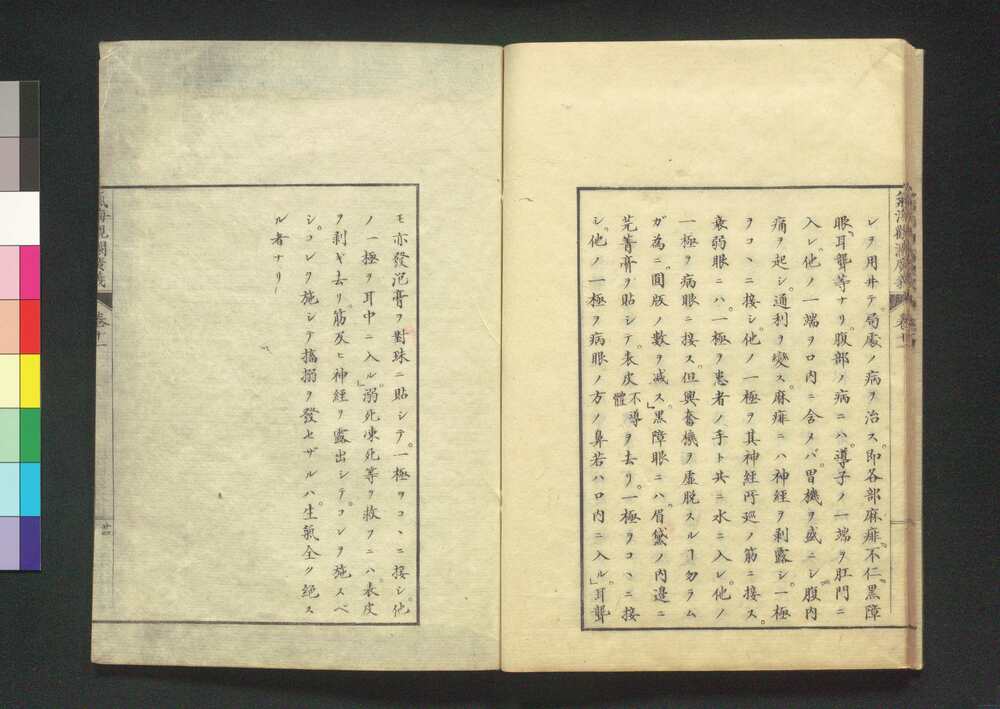 レヲ用井テ。局處ノ病ヲ治ス。即各部麻痱。不仁。黒障
眼。耳聾等ナリ。腹部ノ病ニハ。導子ノ一端ヲ肛門ニ
入レ。他ノ一端ヲ口内ニ含メバ。胃機ヲ盛ニシ。腹内
痛ヲ起シ。通利ヲ變ス。麻痱ニハ神経ヲ剥露シ。一極
ヲコヽニ接シ。他ノ一極ヲ其神経所巡ノ筋ニ接ス。
衰弱眼ニハ。一極ヲ患者ノ手ト共ニ水ニ入レ。他ノ
一極ヲ病眼ニ接ス。但興奮機ヲ虚脱スルヿ勿ラム
ガ為ニ。圓版ノ數ヲ減ス」黒障眼ニハ。眉黛ノ内邉ニ
芫菁膏ヲ貼シテ。表皮不導體ヲ去リ。一極ヲコヽニ接
シ。他ノ一極ヲ病眼ノ方ノ鼻若ハ口内ニ入ル」耳聾
モ亦發泡膏ヲ對珠ニ貼シテ。一極ヲコヽニ接シ。他
ノ一極ヲ耳中ニ入ル」溺死凍死等ヲ救フニハ。表皮
ヲ剥ギ去リ。筋及ヒ神経ヲ露出シテ。コレヲ施スベ
シ。コレヲ施シテ搐搦ヲ發セザルハ。生氣全ク絶ス
ル者ナリ
氣海觀瀾廣義
巻十一
廿四